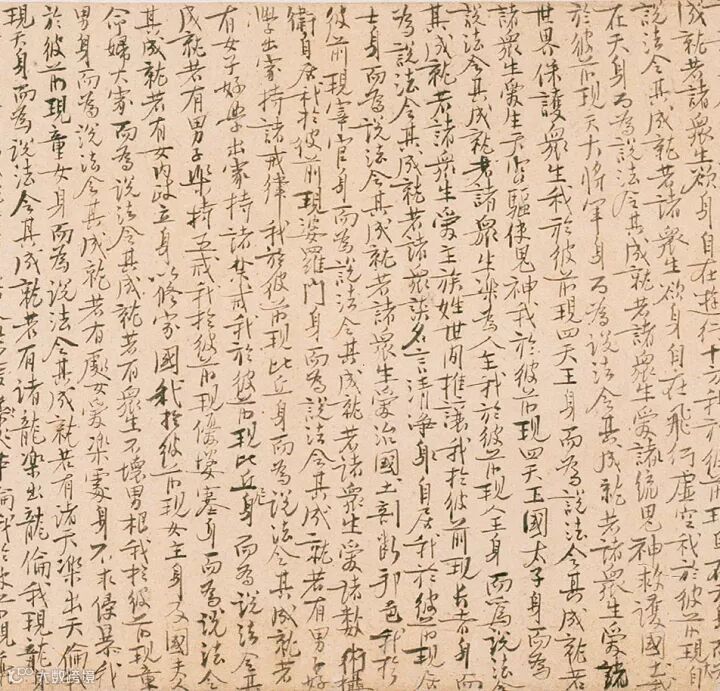 成就若諸眾生欲身自在遊行十方我於彼前
說法令其成就若諸眾生欲身自在飛行虛空我於彼前現自
在天身而為說法令其成就若諸眾生愛統鬼神救護國土我
於彼前現天大將軍身而為說法令其成就若諸眾生愛統
世界保護眾生我於彼前現四天王身而為說法令其成就若
諸眾生愛生天宮驅使鬼神我於彼前現四天王國太子身而
說法令其成就若諸眾生樂為人主我於彼前現人王身而為說
其成就若諸眾生愛主族姓世間推讓我於彼前現長者身而
為說法令其成就若諸眾談名言清淨身自居我於彼
士身而為說法令其成就若諸眾生愛治國土剖斷邦邑我於
彼前現宰官身而為說法令其成就若諸眾生愛諸數術攝
衛自居我於彼前現婆羅門身而為說法令其成就若有男子好
學出家持諸戒律我於彼前現比丘身而為說法令其成就若
有女子好學出家持諸禁戒我於彼前現比丘尼身而為說法令其
成就若有男子樂持五戒我於彼前現優婆塞身而為說法令
其成就若有女內政立身以修家國我於彼前現女主身及國夫
命婦大家而為說法令其成就若有眾生不壞男根我於彼前現童
男身而為說法令其成就若有處女愛樂處身不求侵暴我
於彼前現童女身而為說法令其成就若有諸天樂出天倫
現天身而為說法令其成就若有諸龍樂出龍倫我現龍
大数跨境